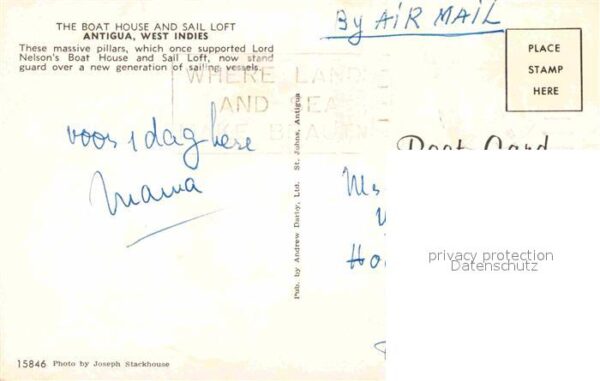 THE BOAT HOUSE AND SAIL LOFT
ANTIGUA, WEST INDIES
These massive pillars, which once supported Lord
Nelson's Boat House and Sail Loft, now stand
guard over a new generation of sailing vessels.
By AIR MAIL
PLACE
STAMP
HERE
WHERE LAND
AND SEA
voor 1 dag here
Mama
Pub. by Andrew Darby, Ltd. St. Johns, Antigua
Post Card
privacy protection
Datenschutz
15846 Photo by Joseph Stackhouse